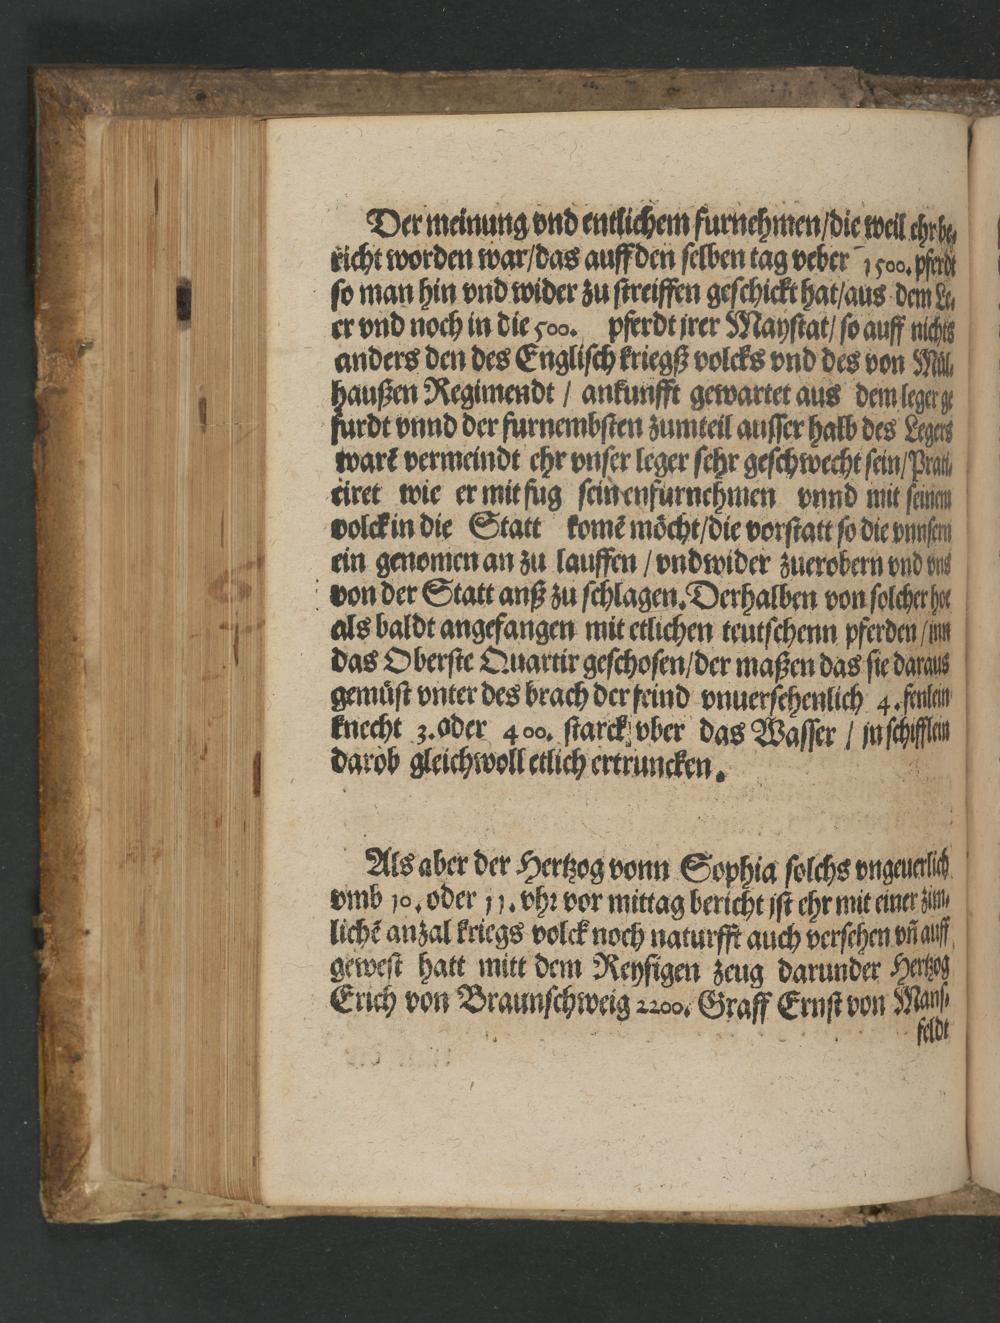 Der meinung vnd entlichem furnehmen/die weil ehr be,
richt worden war/das auff den selben tag veber 1500. pferdt
so man hin vnd wider zu streiffen geschickt hat/aus dem Le,
er vnd noch in die 500. pferdt irer Maystat/ so auff nichts
anders den des Englisch kriegß volcks vnd des von Mül,
haußen Regimendt / ankunfft gewartet aus dem leger ge
furdt vnnd der furnembsten zumteil ausser halb des Legers
warẽ vermeindt ehr vnser leger sehr geschwecht sein/Prati,
ciret wie er mit fug seinenfurnehmen vnnd mit seinem
volck in die Statt komẽ möcht/die vorstatt so die vnnsern
ein genomen an zu lauffen / vnd wider zuerobern vnd vns
von der Statt anß zu schlagen. Derhalben von solcher hoe
als baldt angefangen mit etlichen teutschenn pferden/inn
das Oberste Quartir geschosen/der maßen das sie daraus
gemüst vnter des brach der feind vnuersehenlich 4. fenlein
knecht 3. oder 400. starck vber das Wasser / in schifflein
darob gleichwoll etlich ertruncken.
Als aber der Hertzog vonn Sophia solchs vngeuerlich
vmb 10. oder 11. vhr vor mittag bericht ist ehr mit einer zim,
lichẽ anzal kriegs volck noch naturfft auch versehen vñ auff
gewest hatt mitt dem Reysigen zeug darunder Hertzog
Erich von Braunschweig 2200. Graff Ernst von Mans,
feldt